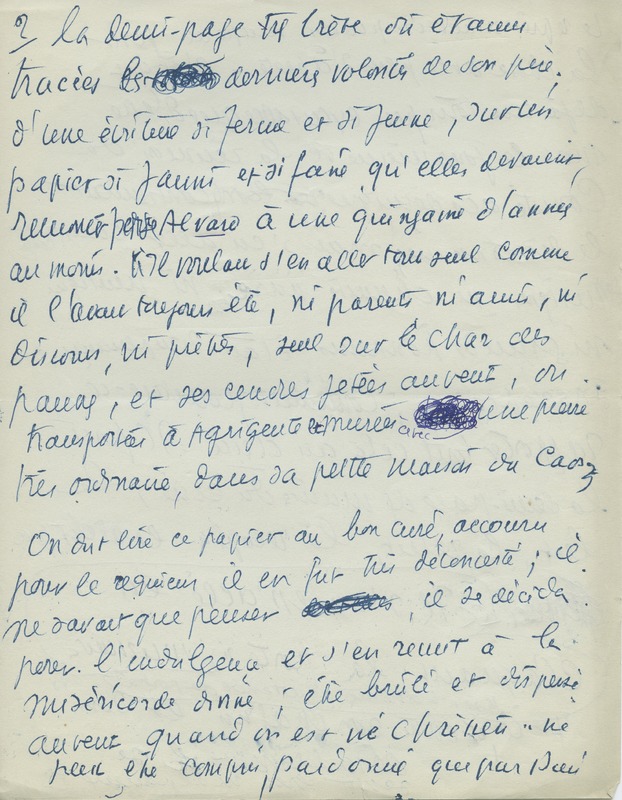 2 la demi-page très brève où étaient
tracées dernières volontés de son père,
d'une écriture si ferme et si jeune, sur un
papier si jauni et si fané qu'elles devaient,
remonter Alvaro à une quinzaine d'années
au moins. Il voulait s'en aller tout seul comme
il l'avait toujours été, ni parents ni amis, ni
discours, ni prêtres, seul sur le char des
pauvres, et ses cendres jetées au vent, ou
transportées à Agrigente murées avec une pierre
très ordinaire, dans sa petite maison du Caos
On dut lire ce papier au bon curé, accouru
pour le requiem il en fut très déconcerté ; il
ne savait que penser, il se décida
pour l'indulgence et s'en remit à la
miséricorde divine ; être brûlé et dispersé
au vent quand on est né chrétien ne
peut être compris, pardonné que par Dieu